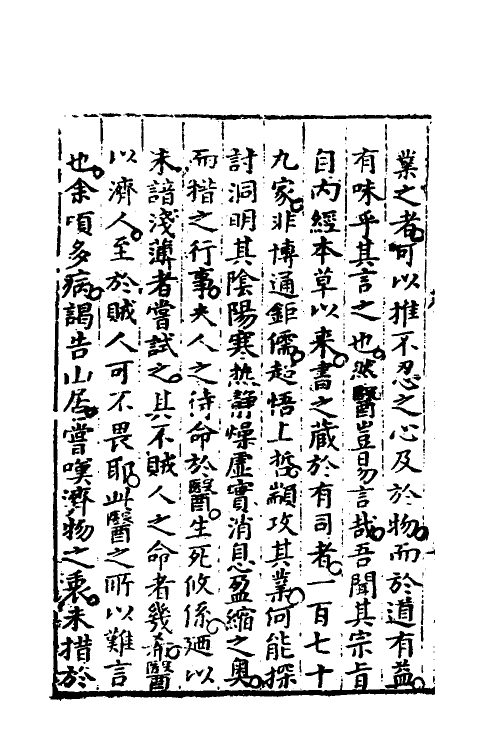 業之者可以推不忍之心及於物而於道有益
有味乎其言之也然醫豈易言哉吾聞其宗旨
自內經本草以來書之蔵於有司者一百七十
九家非博通鉅儒超悟上哲顓攻其業何能探
討洞明其陰陽寒热静燥虛實消息盈縮之奥
而措之行事夫人之待命於醫生死攸係廼以
未諳淺薄者嘗試之其不賊人之命者幾希醫
以濟人至於賊人可不畏耶此醫之所以難言
也余頃多病謁告山居嘗嘆濟物之衷未措於